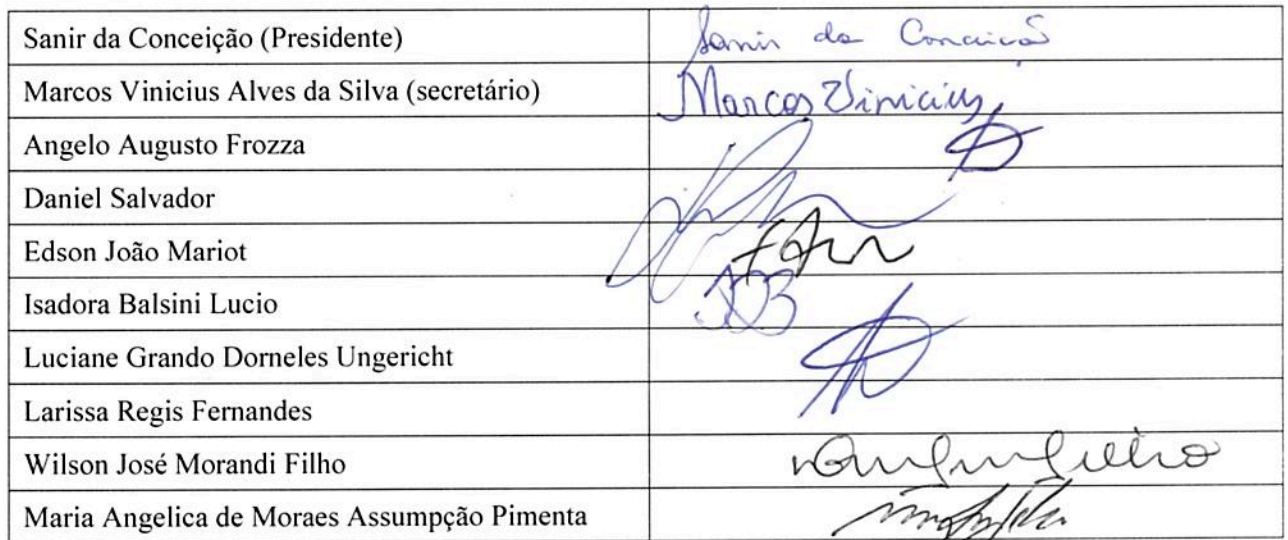 Sanir da Conceição (Presidente) Sanir da Conceição
Marcos Vinicius Alves da Silva (secretário) Marcos Vinicius
Angelo Augusto Frozza
Daniel Salvador
Edson João Mariot
Isadora Balsini Lucio
Luciane Grando Dorneles Ungericht
Larissa Regis Fernandes
Wilson José Morandi Filho
Maria Angelica de Moraes Assumpção Pimenta